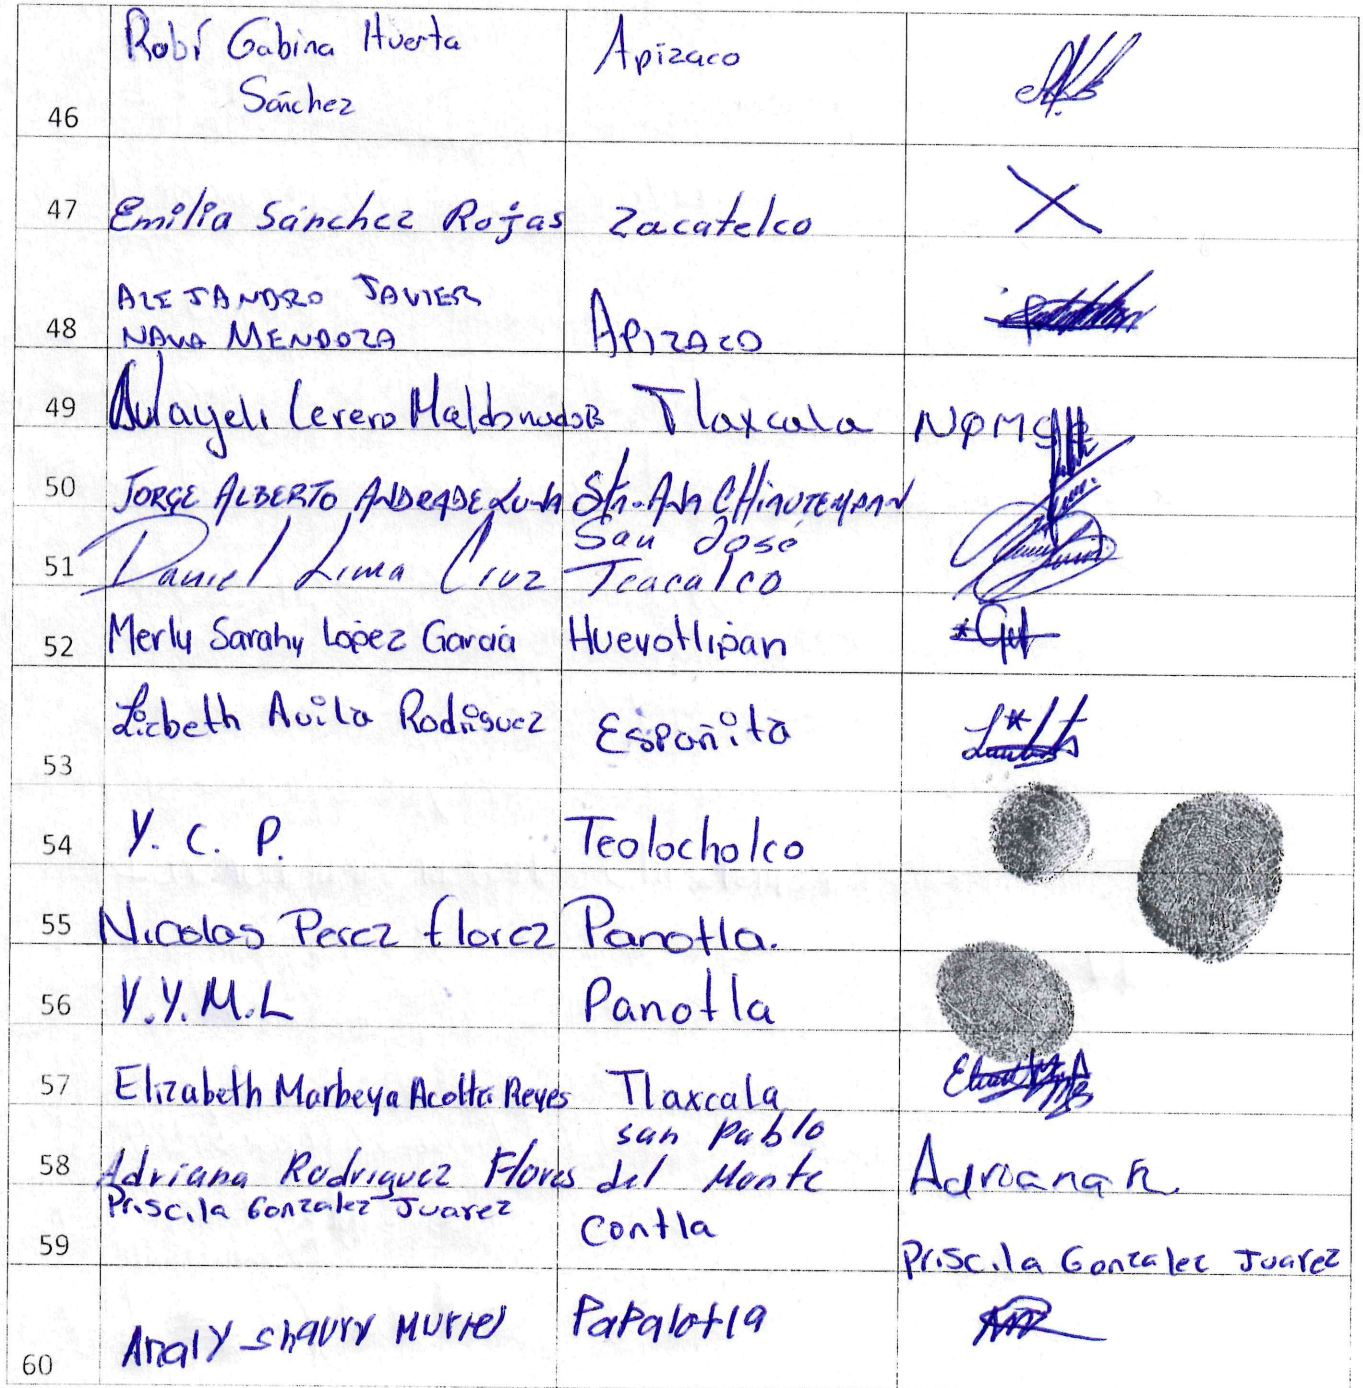 Robí Gabina Huerta Apizaco
Sánchez
46
47 Emilia Sánchez Rojas Zacatelco
ALEJANDRO JAVIER
48 NAVA MENDOZA APIZACO
49 Maldonado Tlaxcala
50 JORGE ALBERTO ANDRADE LUNA
San José
51 Daniel Lima Cruz Teacalco
52 Merly Sarahy López García Hueyotlipan
Lizbeth Avila Rodriguez Españita
53
54 Y. C. P. Teolocholco
55 Nicolas Perez florez Panotla.
56 Y.Y.M.L Panotla
57 Elizabeth Marbeya Acolta Reyes Tlaxcala
san pablo
58 Adriana Rodriguez Flores del Monte Adriana R.
Priscila Gonzalez Juarez
59 Contla Priscila Gonzalez Juarez
Analy Muriel Papalotla
60